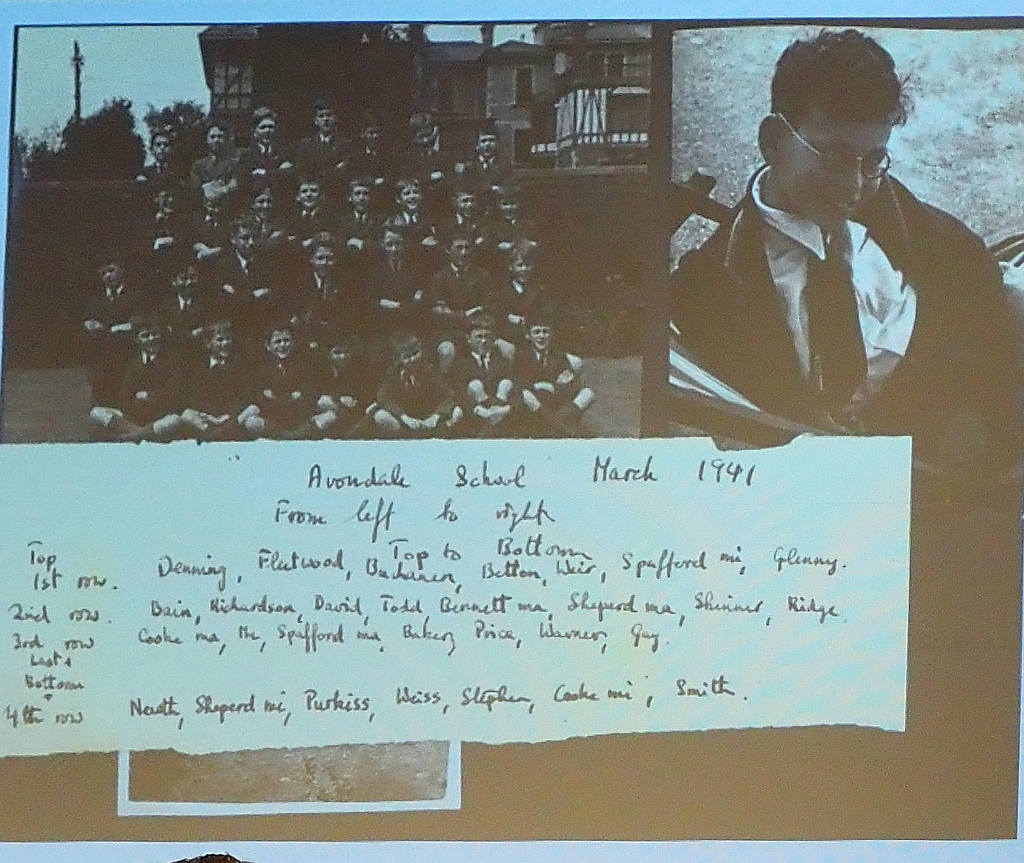 Avondale School March 1941
From left to right
Top to Bottom
Top
1st row. Denning, Fleetwood, Buchanen, Betton, Weir, Spafford mi, Glenny.
2nd row. Bain, Richardson, David, Todd, Bennett ma, Sheperd ma, Skinner, Ridge
3rd row Cooke ma, Me, Spafford ma, Baker, Price, Warner, Gay.
Last &
Bottom
4th row Neath, Sheperd mi, Purkiss, Weiss, Stephen, Cooke mi, Smith.